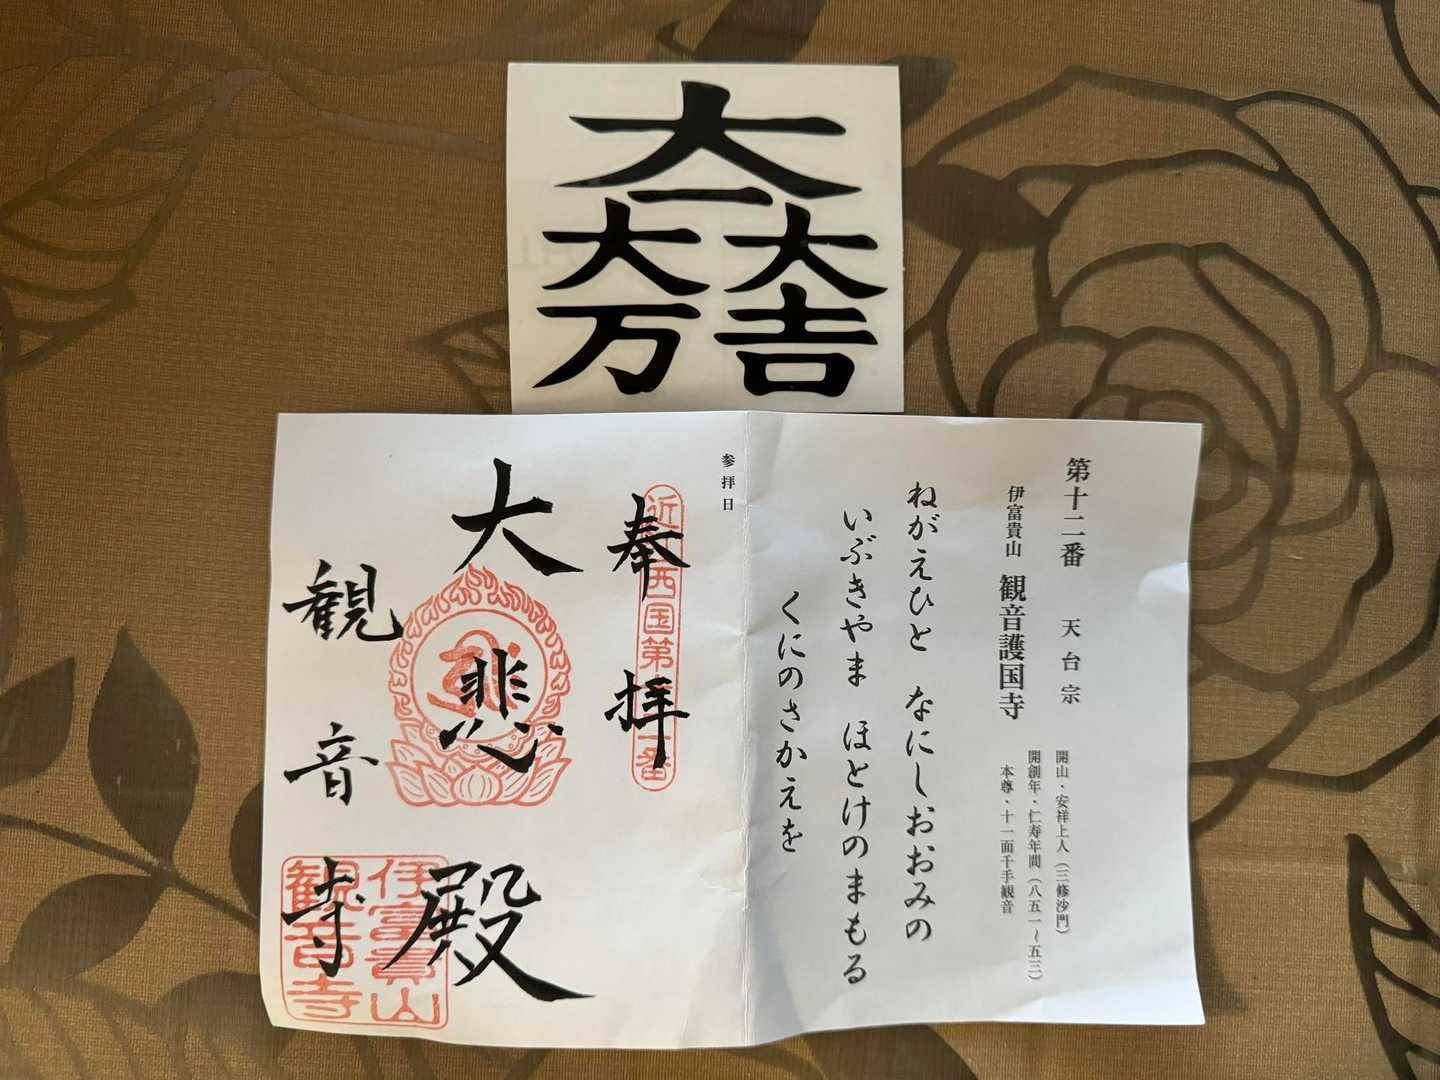 大一大万大吉
第十二番 天台宗
伊富貴山 観音護国寺
開山・安祥上人（三修沙門）
開創年・仁寿年間（八五一～五三）
本尊・十一面千手観音
ねがえひと なにしおおみの
いぶきやま ほとけのまもる
くにのさかえを
参拝日
奉拝
近江西国第十二番
大悲殿
観音寺
伊富貴山
観音寺